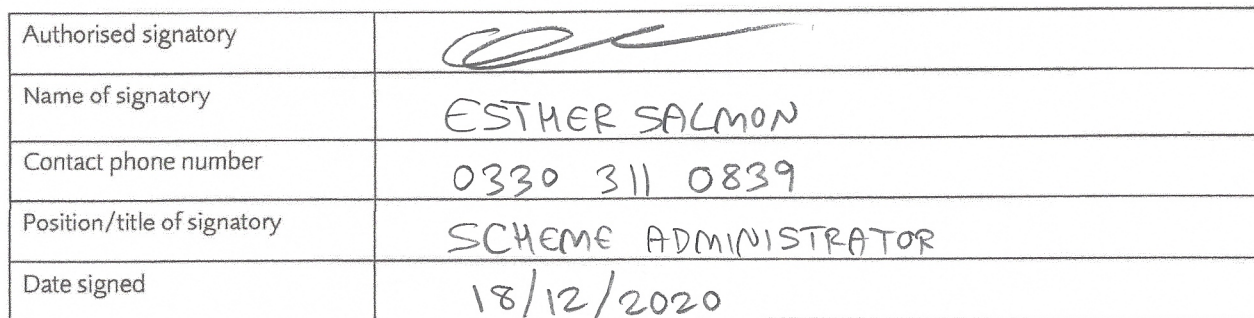 Authorised signatory
Name of signatory ESTHER SALMON
Contact phone number 0330 311 0839
Position/title of signatory SCHEME ADMINISTRATOR
Date signed 18/12/2020